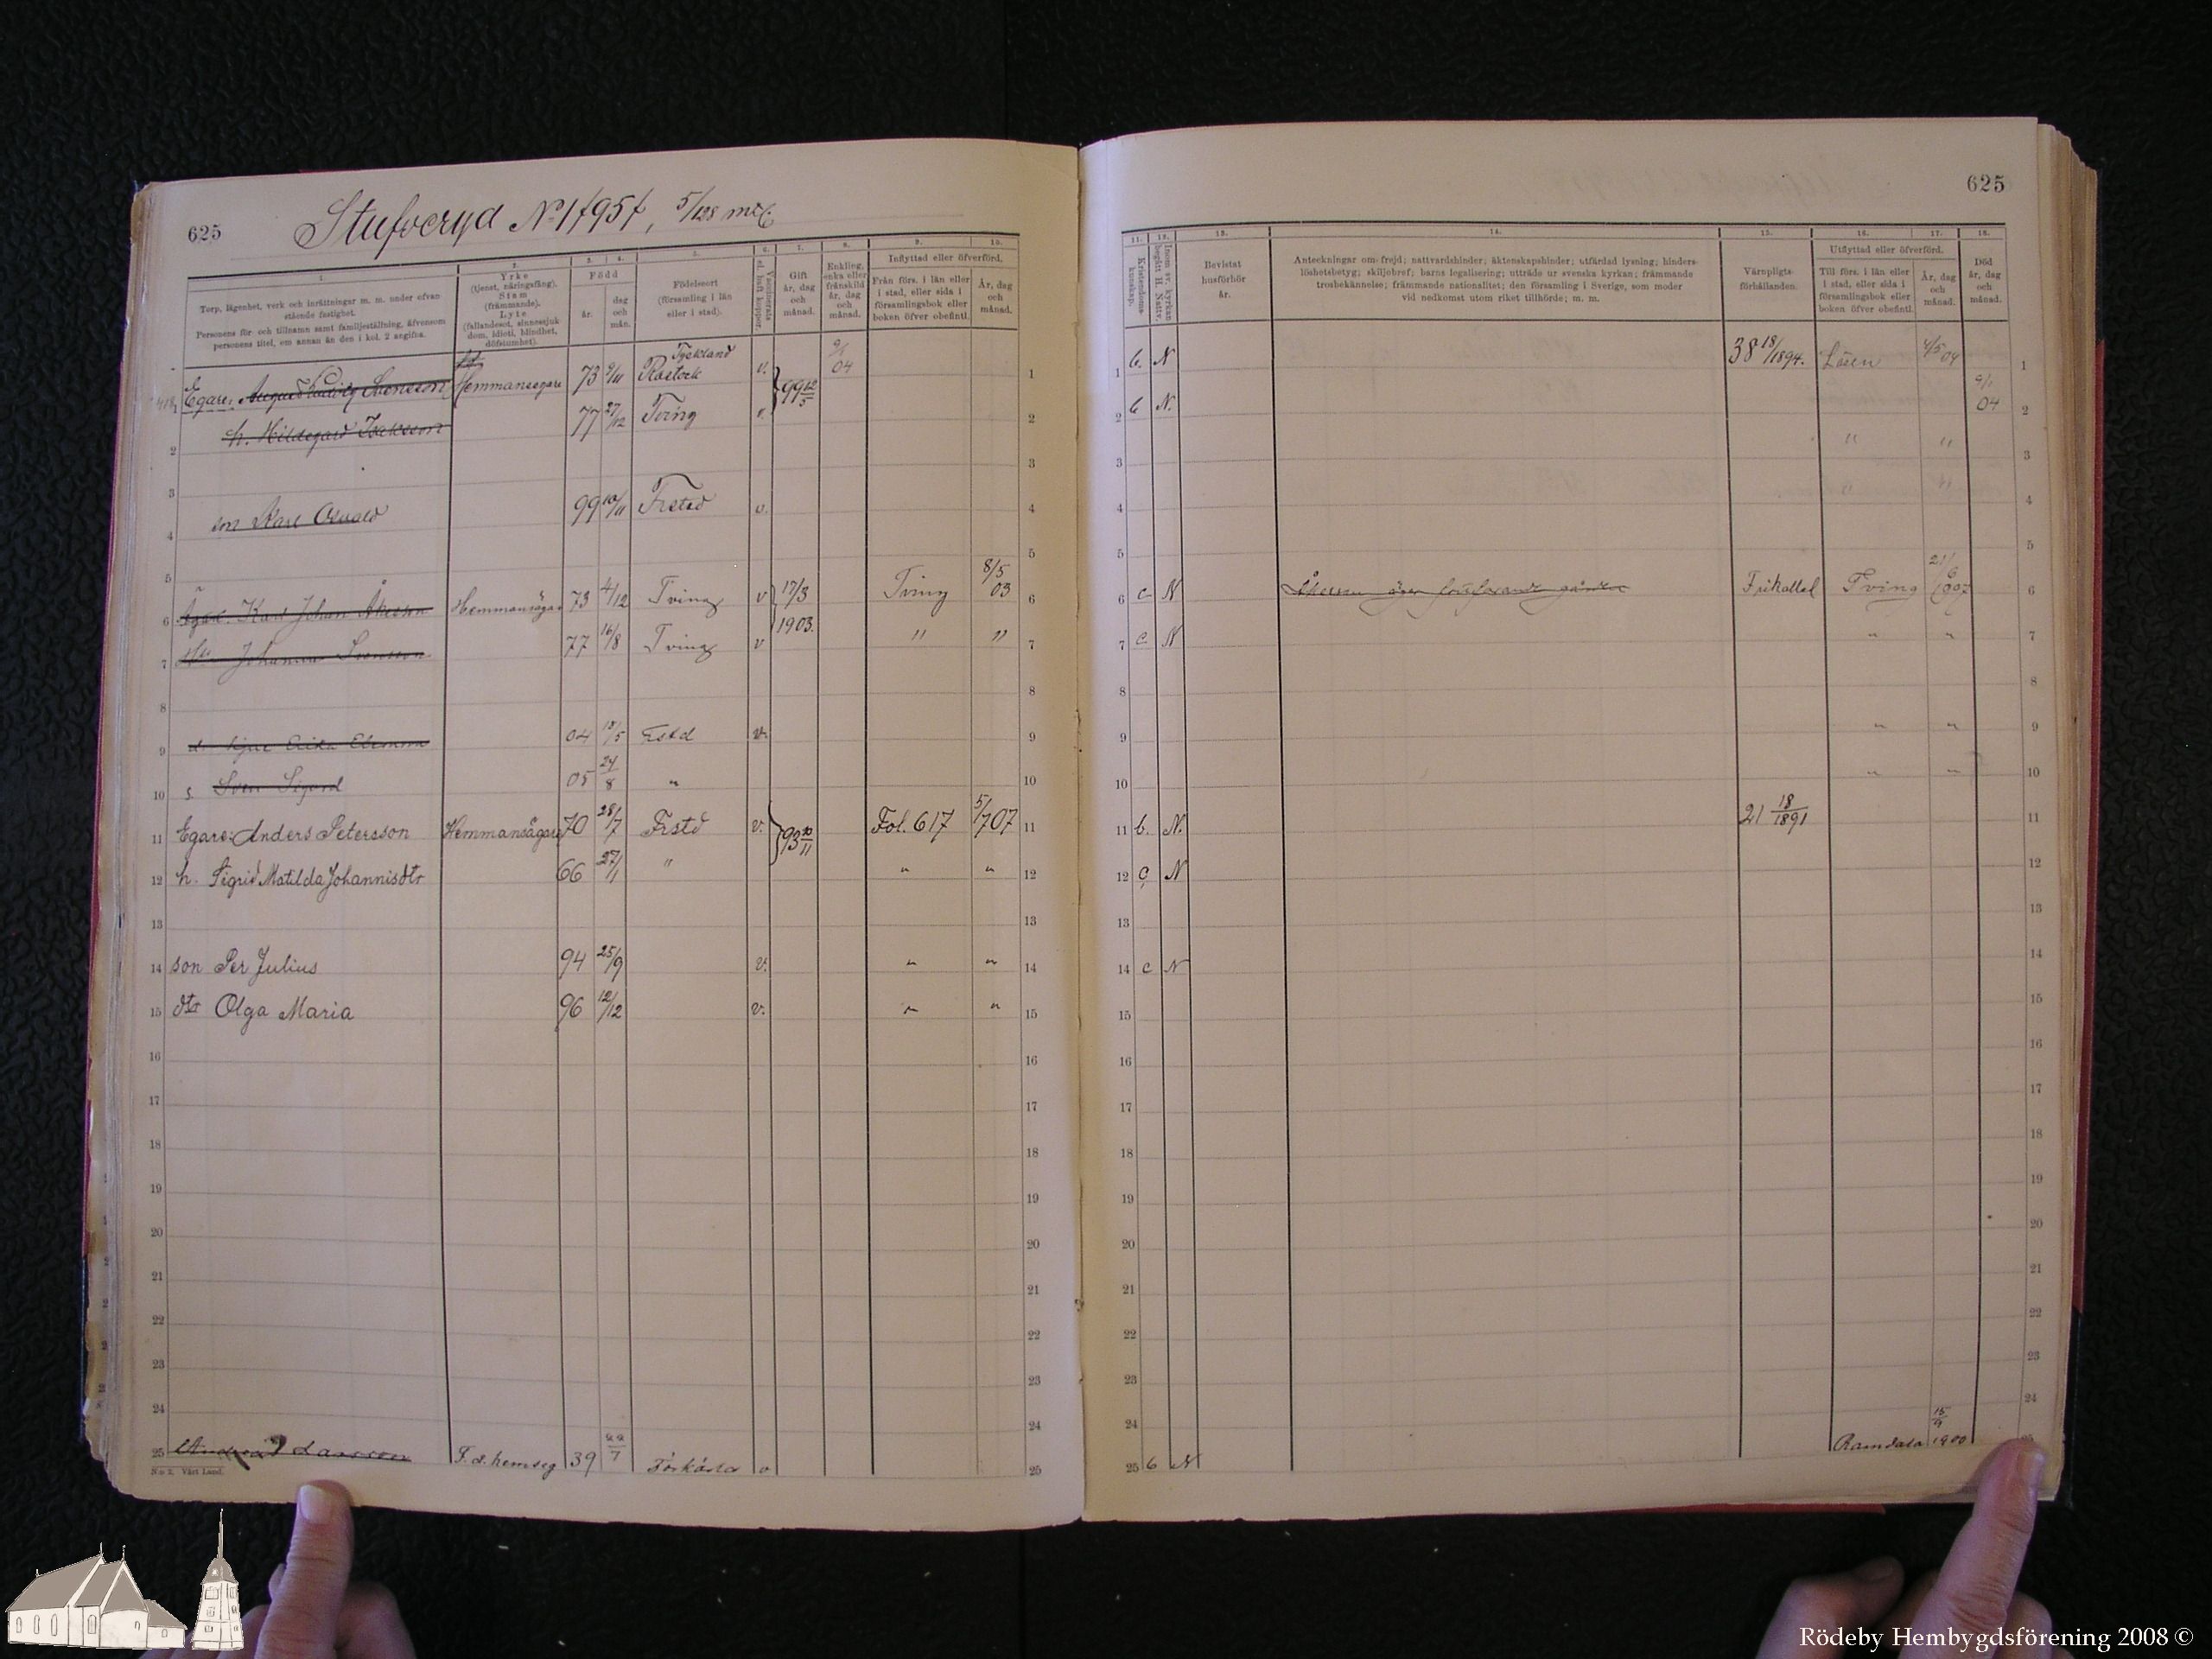 625
Stufveryd No 1 & 95 &, 5/128 mtl.
1.
Torp, lägenhet, verk och inrättningar m. m. under ofvan stående fastighet.
Personens för- och tillnamn samt familjeställning, äfvensom personens titel, om annan än den i kol. 2 angifna.
2.
Yrke
(tjenst, näringsfång).
Stam
(främmande).
Lyte
(fallandesot, sinnessjukdom, idioti, blindhet, döfstumhet).
3. 4.
Född
år. dag och mån.
5.
Födelseort
(församling i län eller i stad).
6.
Vaccinerats el. haft koppor.
7.
Gift år, dag och månad.
8.
Enkling, enka eller frånskild år, dag och månad.
9. 10.
Inflyttad eller öfverförd.
Från förs. i län eller i stad, eller sida i församlingsbok eller boken öfver obefintl.
År, dag och månad.
1 Egare: August Ludvig Svensson Hemmansegare 73 9/11 Tyskland Rostock v. 99 5 9/1 04 1
2 h. Hildegard Isaksson 77 27/12 Tving v. 2
3 3
4 son Karl Osvald 99 10/11 Frstd v. 4
5 5
6 Ägar. Karl Johan Åkesson Hemmansägar 73 4/12 Tving v 17/3 1903. Tving 8/5 03 6
7 Johanna Svensson 77 16/8 Tving v " " 7
8 8
9 d. Erika Elenora 04 18/5 Fstd v. 9
10 s. Sven Sigurd 05 24/8 " 10
11 Egare: Anders Petersson Hemmansägare 70 28/7 Frstd v. 93 10/11 Fol. 617 5/7 07 11
12 h. Sigrid Matilda Johannisdtr 66 27/1 " " " 12
13 13
14 son Per Julius 94 25/9 v. " " 14
15 dtr Olga Maria 96 12/12 v. " " 15
16 16
17 17
18 18
19 19
20 20
21 21
22 22
23 23
24 24
25 Andreas Larsson F. d. hemseg 39 22/7 Förkärla v 25
N:o 2. Vårt Lund.
625
11.
Kristendomskunskap.
12.
Inom sv. kyrkan begått H. Nattv.
13.
Bevistat husförhör år.
14.
Anteckningar om: frejd; nattvardshinder; äktenskapshinder; utfärdad lysning; hinderslöshetsbetyg; skiljobref; barns legalisering; utträde ur svenska kyrkan; främmande trosbekännelse; främmande nationalitet; den församling i Sverige, som moder vid nedkomst utom riket tillhörde; m. m.
15.
Värnpligtsförhållanden.
16. 17.
Utflyttad eller öfverförd.
Till förs. i län eller i stad, eller sida i församlingsbok eller boken öfver obefintl.
År, dag och månad.
18.
Död år, dag och månad.
1 b. N 38 18/1894. Lösen 4/5 04 1
2 b N. 9/1 04 2
3 " " 3
4 " " 4
5 5
6 c N Åkesson äger fortfarande gården Frikallad Tving 21/6 1907 6
7 c N " " 7
8 8
9 " " 9
10 " " 10
11 b. N. 21 18/1891 11
12 c N 12
13 13
14 c N 14
15 15
16 16
17 17
18 18
19 19
20 20
21 21
22 22
23 23
24 24
25 b N Ramdala 15/9 1900
Rödeby Hembygdsförening 2008 ©